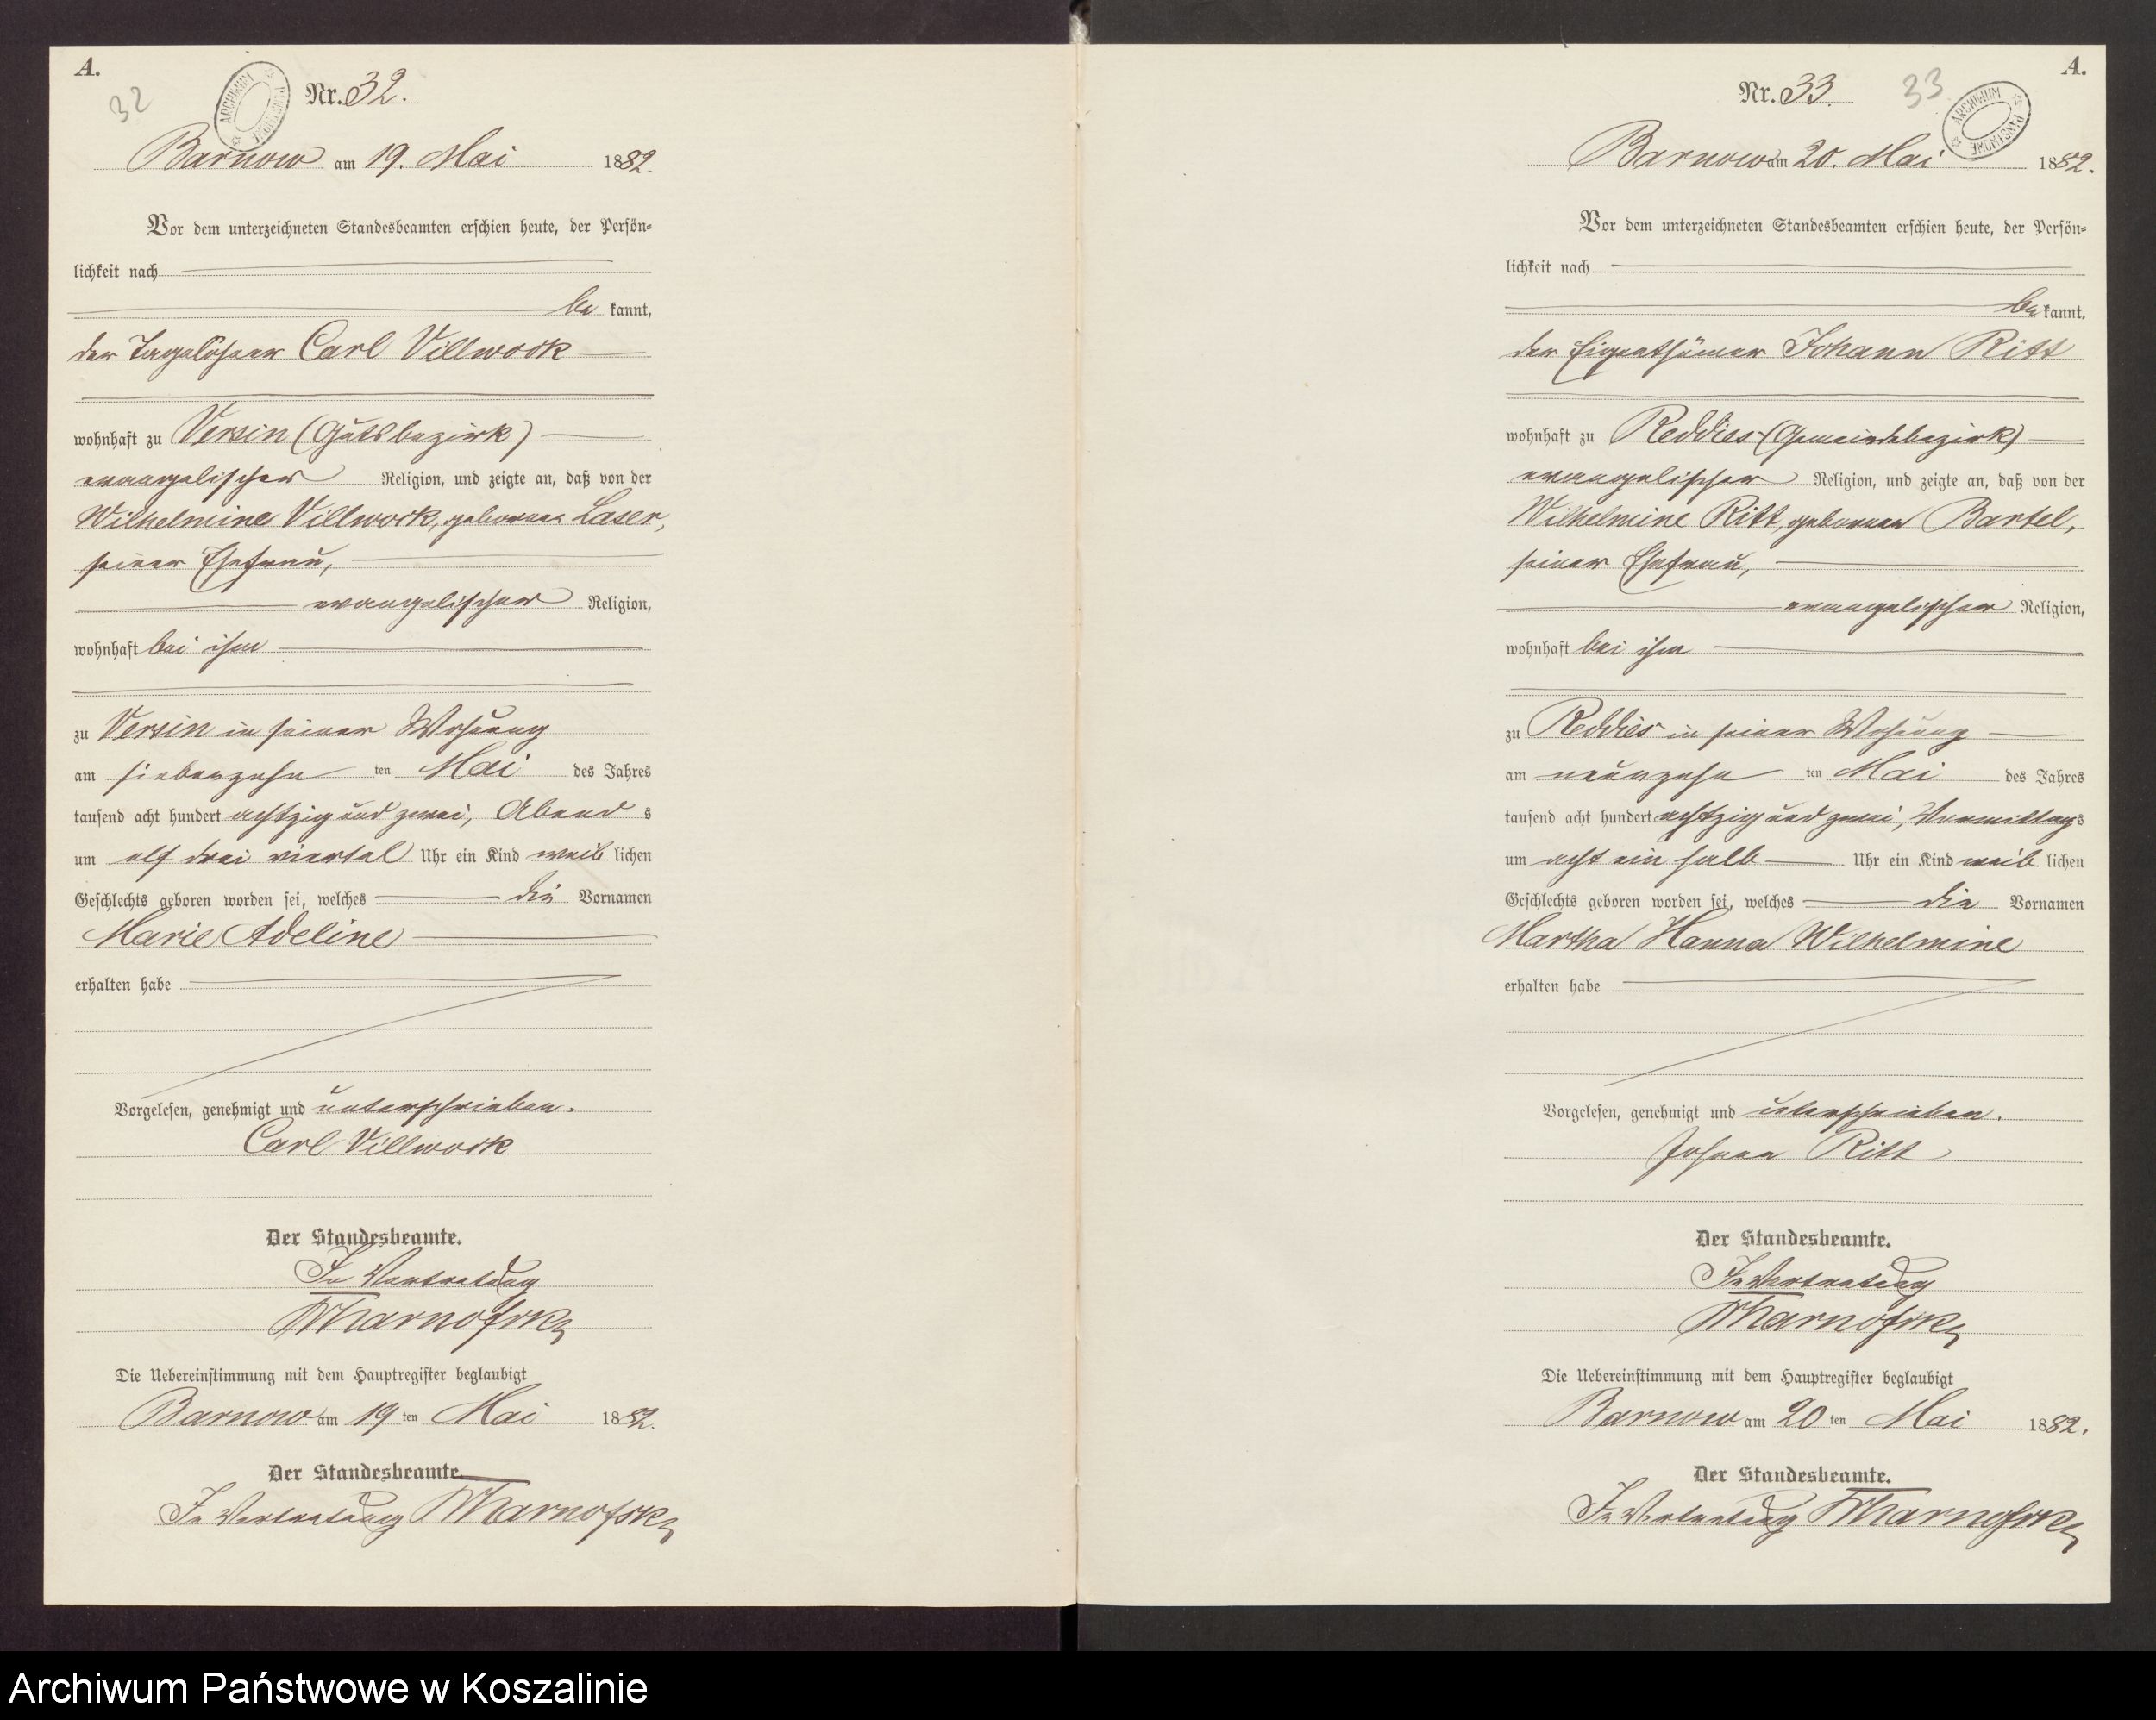 A.
32
ARCHIWUM PAŃSTWOWE
Nr. 32.
Barnow am 19. Mai 1882.
Vor dem unterzeichneten Standesbeamten erschien heute, der Persön=
lichkeit nach
be kannt,
der Tagelöhner Carl Villwock
wohnhaft zu Versin (Gutsbezirk)
evangelischer Religion, und zeigte an, daß von der
Wilhelmine Villwock, geborenen Laser,
seiner Ehefrau,
evangelischer Religion,
wohnhaft bei ihm
zu Versin in seiner Wohnung
am siebenzehn ten Mai des Jahres
tausend acht hundert achtzig und zwei, Abend s
um elf drei viertel Uhr ein Kind weib lichen
Geschlechts geboren worden sei, welches die Vornamen
Marie Adeline
erhalten habe
Vorgelesen, genehmigt und unterschrieben.
Carl Villwock
Der Standesbeamte.
In Vertretung
Die Uebereinstimmung mit dem Hauptregister beglaubigt
Barnow am 19 ten Mai 1882.
Der Standesbeamte.
In Vertretung
A.
33
ARCHIWUM PAŃSTWOWE
Nr. 33.
Barnow am 20. Mai 1882.
Vor dem unterzeichneten Standesbeamten erschien heute, der Persön=
lichkeit nach
be kannt,
der Eigenthümer Johann Ritt
wohnhaft zu Reddies (Gemeindebezirk)
evangelischer Religion, und zeigte an, daß von der
Wilhelmine Ritt, geborenen Bartel,
seiner Ehefrau,
evangelischer Religion,
wohnhaft bei ihm
zu Reddies in seiner Wohnung
am neunzehn ten Mai des Jahres
tausend acht hundert achtzig und zwei, Vormittags
um acht ein halb Uhr ein Kind weib lichen
Geschlechts geboren worden sei, welches die Vornamen
Martha Hanna Wilhelmine
erhalten habe
Vorgelesen, genehmigt und unterschrieben.
Johann Ritt
Der Standesbeamte.
In Vertretung
Die Uebereinstimmung mit dem Hauptregister beglaubigt
Barnow am 20 ten Mai 1882.
Der Standesbeamte.
In Vertretung
Archiwum Państwowe w Koszalinie